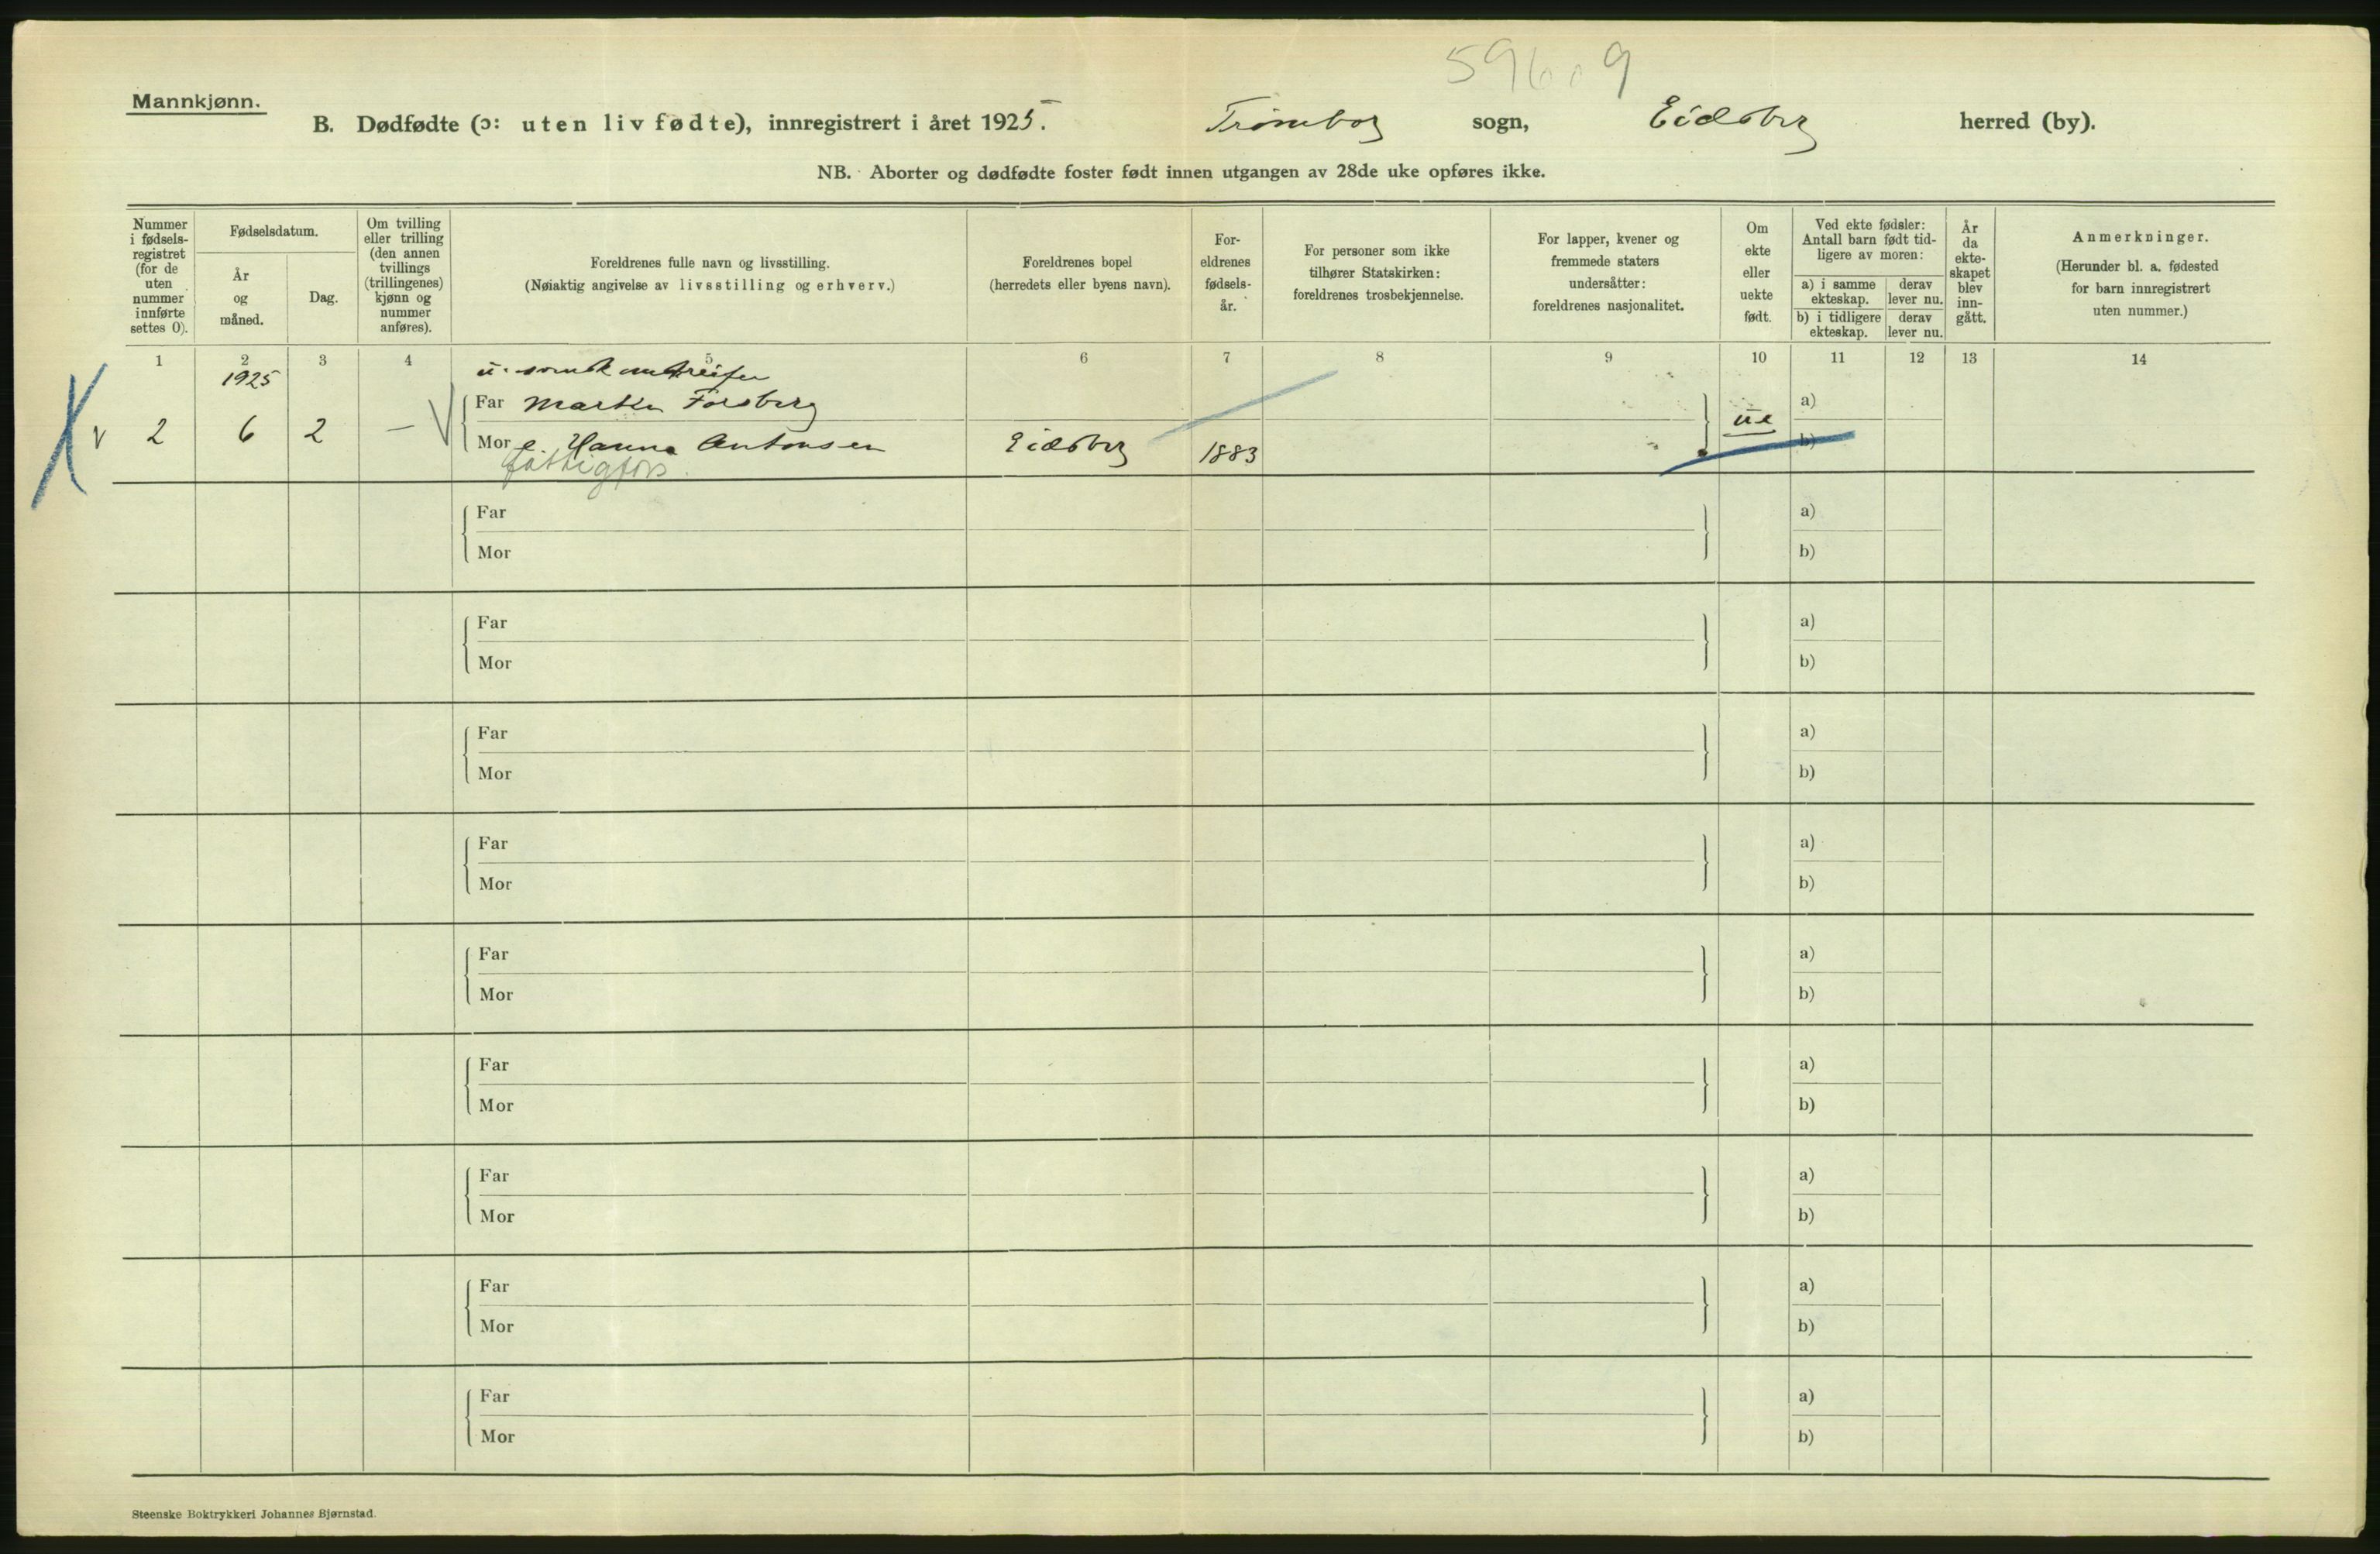 59609
Mannkjønn.
B. Dødfødte (ɔ: uten liv fødte), innregistrert i året 1925. Trømborg sogn, Eidsberg herred (by).
NB. Aborter og dødfødte foster født innen utgangen av 28de uke opføres ikke.
Nummer i fødsels-registret (for de uten nummer innførte settes 0).
Fødselsdatum.
År og måned.
Dag.
Om tvilling eller trilling (den annen tvillings (trillingenes) kjønn og nummer anføres).
Foreldrenes fulle navn og livsstilling.
(Nøiaktig angivelse av livsstilling og erhverv.)
Foreldrenes bopel
(herredets eller byens navn).
For-eldrenes fødsels-år.
For personer som ikke tilhører Statskirken: foreldrenes trosbekjennelse.
For lapper, kvener og fremmede staters undersåtter: foreldrenes nasjonalitet.
Om ekte eller uekte født.
Ved ekte fødsler: Antall barn født tid-ligere av moren:
a) i samme ekteskap.
derav lever nu.
b) i tidligere ekteskap.
derav lever nu.
År da ekte-skapet blev inn-gått.
Anmerkninger.
(Herunder bl. a. fødested for barn innregistrert uten nummer.)
1 2 3 4 5 6 7 8 9 10 11 12 13 14
1925
u. svensk omstreifer
Far Martin Forsberg a)
v 2 6 2 — ue
Mor e. Hanna Antonsen Eidsberg 1883 b)
fattigfors.
Far a)
Mor b)
Far a)
Mor b)
Far a)
Mor b)
Far a)
Mor b)
Far a)
Mor b)
Far a)
Mor b)
Far a)
Mor b)
Far a)
Mor b)
Far a)
Mor b)
Steenske Boktrykkeri Johannes Bjørnstad.